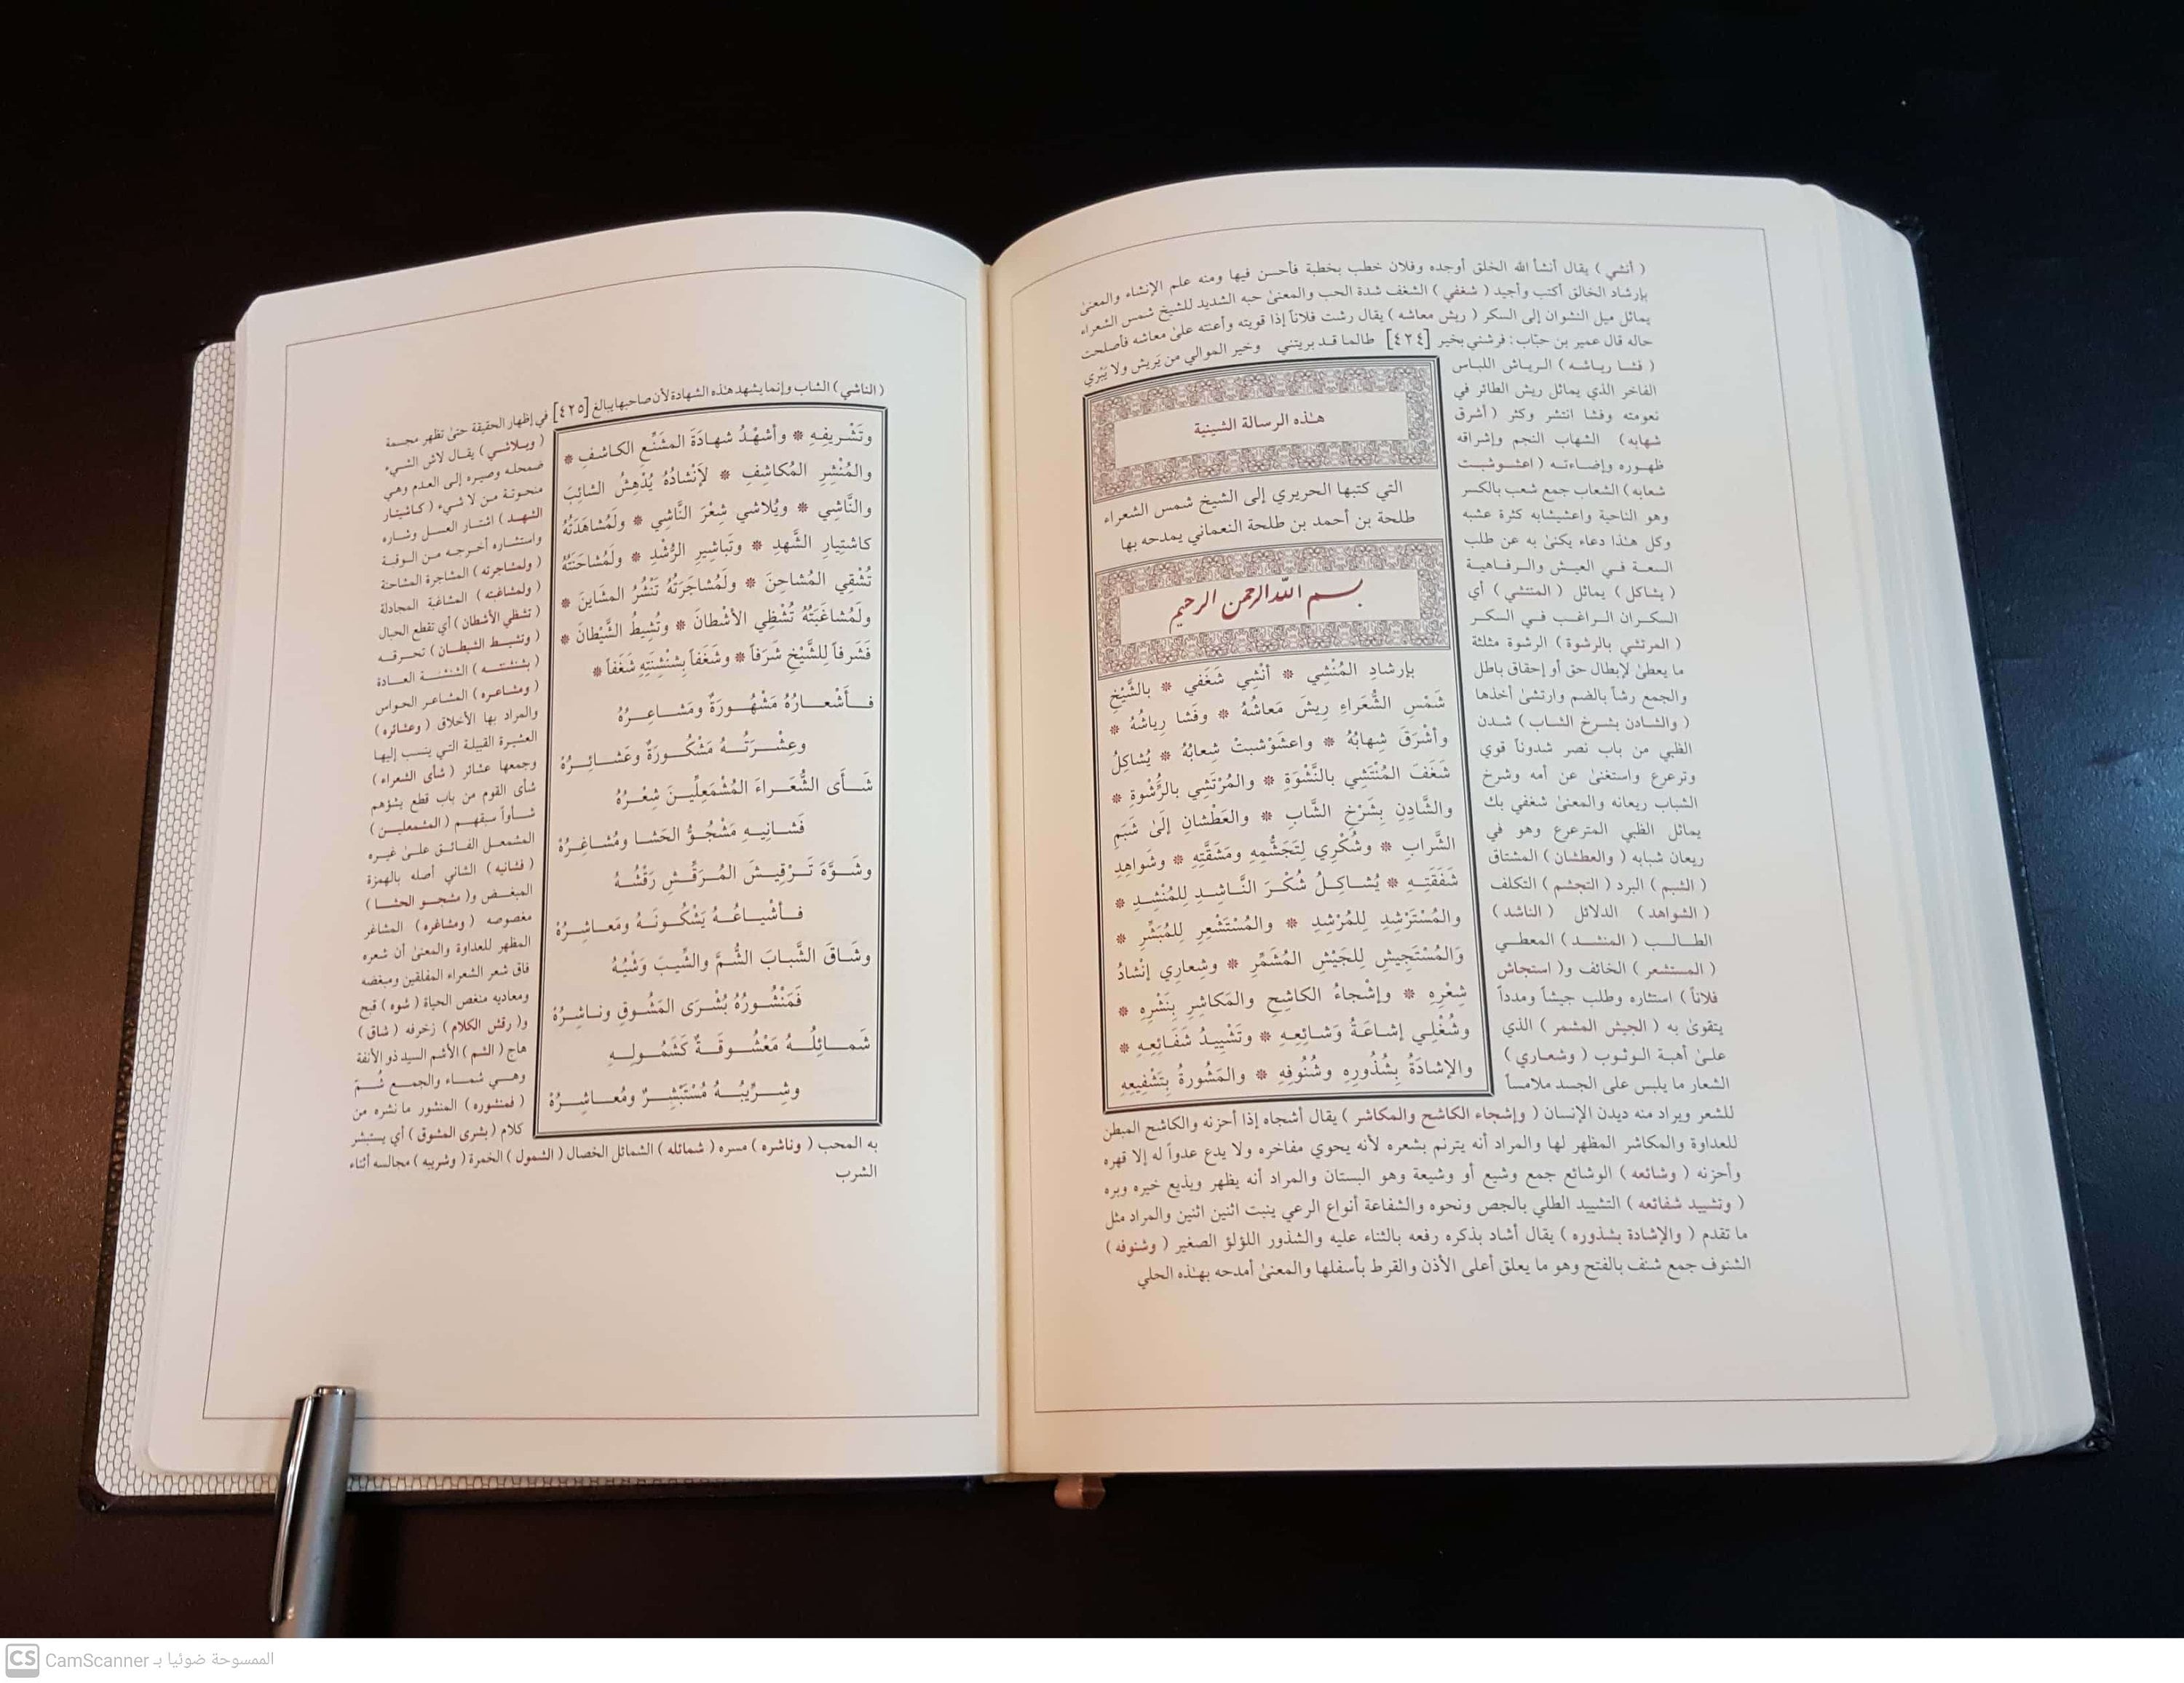 ( أنشي ) يقال أنشأ الله الخلق أوجده وفلان خطب بخطبة فأحسن فيها ومنه علم الإنشاء والمعنىٰ
بإرشاد الخالق أكتب وأجيد ( شغفي ) الشغف شدة الحب والمعنىٰ حبه الشديد للشيخ شمس الشعراء
يماثل ميل النشوان إلى السكر ( ريش معاشه ) يقال رشت فلاناً إذا قويته وأعنته علىٰ معاشه فأصلحت
حاله قال عمير بن حبّاب : فرشني بخير [٤٢٤] طالما قد بريتني وخير الموالي من يَريش ولا يَبْري
هـٰذه الرسالة الشينية
التي كتبها الحريري إلى الشيخ شمس الشعراء
طلحة بن أحمد بن طلحة النعماني يمدحه بها
بسم الله الرحمن الرحيم
بإرشادِ المُنْشِي * أنْشِي شَغَفي * بالشَّيْخِ
شَمْسِ الشُّعَراءِ رِيشَ مَعاشُهُ * وفَشا رِياشُهُ *
وأشْرَقَ شِهابُهُ * واعشَوْشبتْ شِعابُهُ * يُشاكِلُ
شَغَفَ المُنْتَشِي بالنَّشْوَةِ * والمُرْتَشِي بالرِّشْوةِ *
والشَّادِنِ بِشَرْخِ الشَّابِ * والعَطْشانِ إلَىٰ شَبَمِ
الشَّرابِ * وشُكْرِي لِتَجَشُّمِهِ ومَشَقَّتِهِ * وشَواهِدِ
شَفَقَتِـهِ * يُشـاكِـلُ شُكْـرَ النَّـاشِـدِ لِلمُنْشِـدِ *
والمُسْتَرْشِدِ لِلمُرْشِدِ * والمُسْتَشْعِرِ لِلمُبَشِّرِ *
وَالمُسْتَجِيشِ لِلجَيْشِ المُشَمِّرِ * وشِعارِي إنْشادُ
شِعْرِهِ * وإشْجاءُ الكاشِحِ والمَكاشِرِ بِنَشْرِهِ *
وشُغْلِي إشـاعَـةُ وَشائِعِـهِ * وتَشْيِيدُ شَفَائِعِـهِ *
والإشادَةُ بِشُذُورِهِ وشُنُوفِهِ * والمَشُورةُ بِتَشْفِيعِهِ
( فشـا رياشـه ) الـرياش اللبـاس
الفاخر الذي يماثل ريش الطائر في
نعومته وفشا انتشر وكثر ( أشرق
شهابه ) الشهاب النجم وإشراقه
ظهـوره وإضاءتـه ( اعشـوشبـت
شعابه ) الشعاب جمع شعب بالكسر
وهو الناحية واعشيشابه كثرة عشبه
وكل هـٰذا دعاء يكنىٰ به عن طلب
السعـة فـي العيـش والـرفـاهيـة
( يشاكل ) يماثل ( المنتشي ) أي
السكـران الـراغـب فـي السكـر
( المرتشي بالرشوة ) الرشوة مثلثة
ما يعطىٰ لإبطال حق أو إحقاق باطل
والجمع رشاً بالضم وارتشىٰ أخذها
( والشادن بشرخ الشاب ) شدن
الظبي من باب نصر شدوناً قوي
وترعرع واستغنىٰ عن أمه وشرخ
الشباب ريعانه والمعنىٰ شغفي بك
يماثل الظبي المترعرع وهو في
ريعان شبابه ( والعطشان ) المشتاق
( الشبم ) البرد ( التجشم ) التكلف
( الشواهد ) الدلائل ( الناشد )
الطـالـب ( المنشـد ) المعطـي
( المستشعر ) الخائف و( استجاش
فلاناً ) استثاره وطلب جيشاً ومدداً
يتقوىٰ به ( الجيش المشمر ) الذي
علىٰ أهبة الوثوب ( وشعاري )
الشعار ما يلبس على الجسد ملامساً
للشعر ويراد منه ديدن الإنسان ( وإشجاء الكاشح والمكاشر ) يقال أشجاه إذا أحزنه والكاشح المبطن
للعداوة والمكاشر المظهر لها والمراد أنه يترنم بشعره لأنه يحوي مفاخره ولا يدع عدواً له إلا قهره
وأحزنه ( وشائعه ) الوشائع جمع وشيع أو وشيعة وهو البستان والمراد أنه يظهر ويذيع خيره وبره
( وتشييد شفائعه ) التشييد الطلي بالجص ونحوه والشفاعة أنواع الرعي ينبت اثنين اثنين والمراد مثل
ما تقدم ( والإشادة بشذوره ) يقال أشاد بذكره رفعه بالثناء عليه والشذور اللؤلؤ الصغير ( وشنوفه )
الشنوف جمع شنف بالفتح وهو ما يعلق أعلى الأذن والقرط بأسفلها والمعنىٰ أمدحه بهـٰذه الحلي
( الناشي ) الشاب وإنما يشهد هـٰذه الشهادة لأن صاحبها يبالغ [٤٢٥] في إظهار الحقيقة حتىٰ تظهر مجسمة
وتَشْريفِهِ * وأشهْدُ شهادَةَ المشَنِّعِ الكاشفِ *
والمُنْشِرِ المُكاشِفِ * لإَنْشادُهُ يُدْهِشُ الشائِبَ
والنَّاشِي * ويُلاشي شِعْرَ النَّاشِي * ولَمُشاهَدَتُهُ
كاشتِيارِ الشَّهدِ * وتَباشِيرِ الرُّشْدِ * ولَمُشاحَنَتُهُ
تُشْقِي المُشاحِنَ * ولَمُشاجَرَتُهُ تَنْشُرُ المشَاينَ *
ولَمُشاغَبَتُهُ تُشْظِي الأشْطانَ * وتُشِيطُ الشَّيْطانَ *
فَشَرفاً لِلشَّيْخِ شَرَفاً * وشَغَفاً بِشِنْشِنَتِهِ شَغَفاً *
فـأَشْعـارُهُ مَشْهُـورَةٌ ومَشـاعِـرُهُ
وعِشْـرَتُـهُ مَشْكُـورَةٌ وعَشـائِـرُهُ
شَـأَى الشُّعَـراءَ المُشْمَعِلِّيـنَ شِعْـرُهُ
فَشـانِيـهِ مَشْجُـوُّ الحَشـا ومُشاغِرُهُ
وشَـوَّهَ تَـرْقِيـشَ المُـرَقِّـشِ رَقْشُـهُ
فـأشْيـاعُـهُ يَشْكُـونَـهُ ومَعـاشِـرُهُ
وشَـاقَ الشَّبـابَ الشُّـمَّ والشِّيـبَ وَشْيُـهُ
فَمَنْشُـورُهُ بُشْـرَى المَشُـوقِ ونـاشِـرُهُ
شَمـائِلُـهُ مَعْشُـوقَـةٌ كَشَمُـولِـهِ
وشِـرِّيبُـهُ مُسْتَبْشِـرٌ ومُعـاشِـرُهُ
( ويـلاشـي ) يقـال لاش الشـيء
ضمحله وصيره إلى العدم وهي
منحوتة من لا شيء ( كـاشتيـار
الشهـد ) اشتـار العسـل وشـاره
واستشاره أخرجـه مـن الـوقبـة
( ولمشاجرته ) المشاجرة المشاحنة
( ولمشاغبته ) المشاغبة المجادلة
( تشظي الأشطان ) أي تقطع الحبال
( وتشيـط الشيطـان ) تحـرقـه
( بشنشنتـه ) الشنشنـة العـادة
( ومشاعـره ) المشاعر الحواس
والمراد بها الأخلاق ( وعشائره )
العشيرة القبيلة التي ينسب إليها
وجمعها عشائر ( شأى الشعراء )
شأى القوم من باب قطع يشؤهم
شـأواً سبقهـم ( المشمعليـن )
المشمعـل الفـائـق علـىٰ غيـره
( فشانيه ) الشاني أصله بالهمزة
المبغـض و( مشجـو الحشـا )
مغصوصه ( ومشاغره ) المشاغر
المظهر للعداوة والمعنىٰ أن شعره
فاق شعر الشعراء المفلقين ومبغضه
ومعاديه منغص الحياة ( شوه ) قبح
و( رقش الكلام ) زخرفه ( شاق )
هاج ( الشم ) الأشم السيد ذو الأنفة
وهـي شمـاء والجمـع شُـمّ
( فمنشوره ) المنشور ما نشره من
كلام ( بشرى المشوق ) أي يستبشر
به المحب ( وناشره ) مسره ( شمائله ) الشمائل الخصال ( الشمول ) الخمرة ( وشريبه ) مجالسه أثناء
الشرب
CS CamScanner الممسوحة ضوئيا بـ